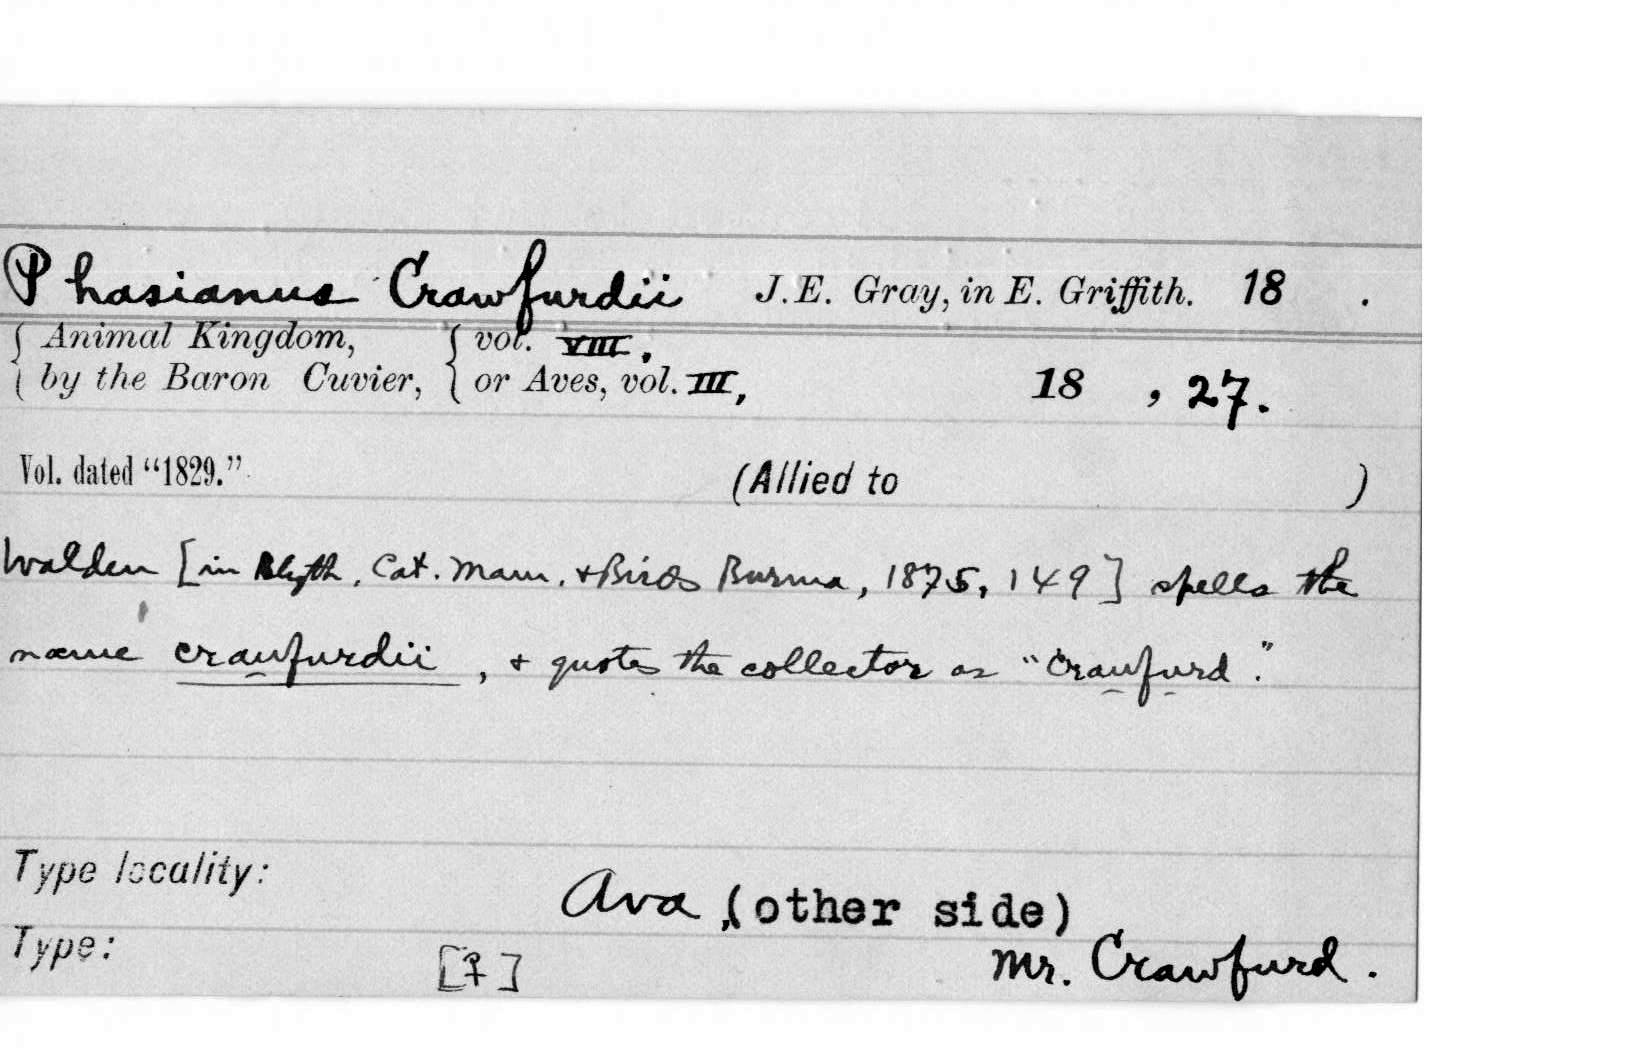 Phasianus Crawfurdii J.E. Gray, in E. Griffith. 18 .
{ Animal Kingdom, { vol. VIII.
{ by the Baron Cuvier, { or Aves, vol. III, 18 , 27.
Vol. dated “1829.” (Allied to )
Walden [in Blyth, Cat. Mam. & Birds Burma, 1875, 149] spells the
name craufurdii, & quotes the collector as "Craufurd".
Type locality: Ava, (other side)
Type: [♀] Mr. Crawfurd.